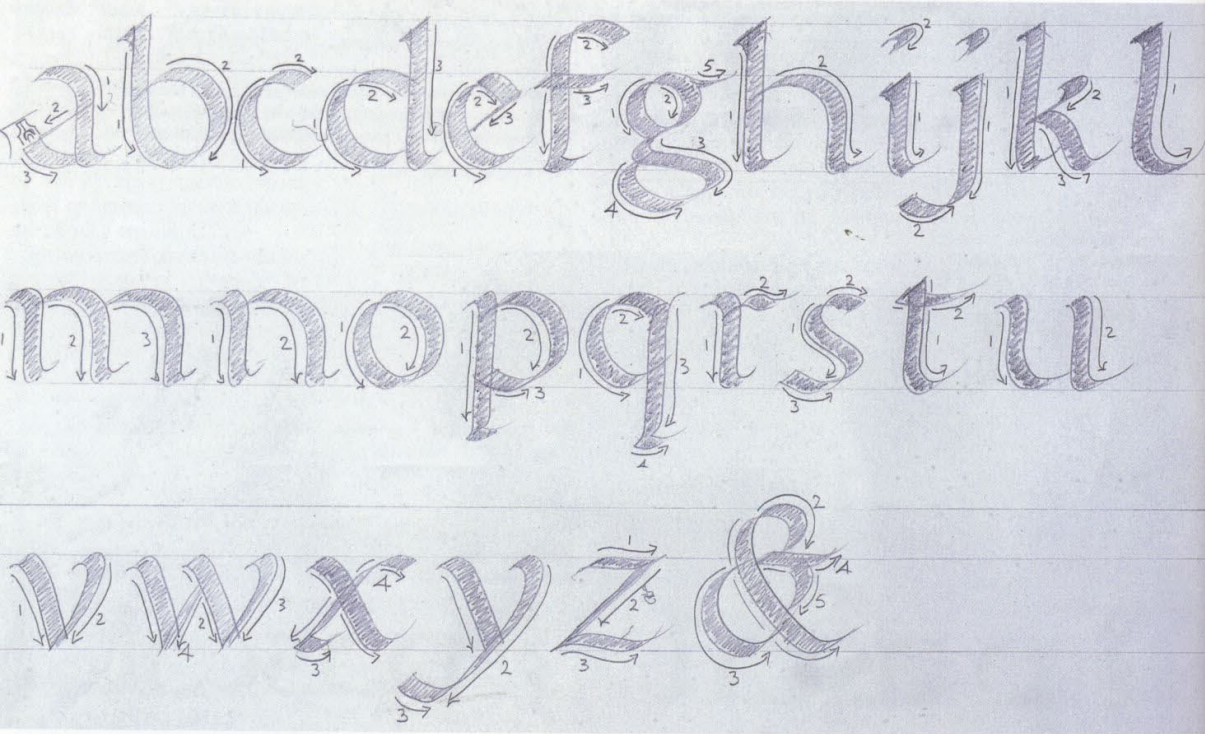 abcdefghijkl
mnopqrstu
vwxyz&